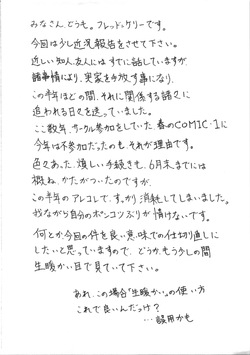 みなさん、どうも。フレッド・ケリーです。
今回は少し近況報告をさせて下さい。
近しい知人、友人にはすでに話していますが、
諸事情により、実家を手放す事になり、
この半年ほどの間、それに関係する諸々に
追われる日々を送っていました。
ここ数年、サークル参加をしていた春のCOMIC・1に
今年は不参加だったのも、それが理由です。
色々あった、煩しい手続きも、6月末までには
概ね、かたがついたのですが、
この半年のアレコレで、すっかり消耗してしまいました。
我ながら自分のポンコツぶりが情けないです。
何とか、今回の件を良い意味での仕切り直しに
したいと思っていますので、どうか、もう少しの間
生暖かい目で見ていて下さい。
あれ、この場合「生暖かい」の使い方
これで良いんだっけ？
…誤用かも